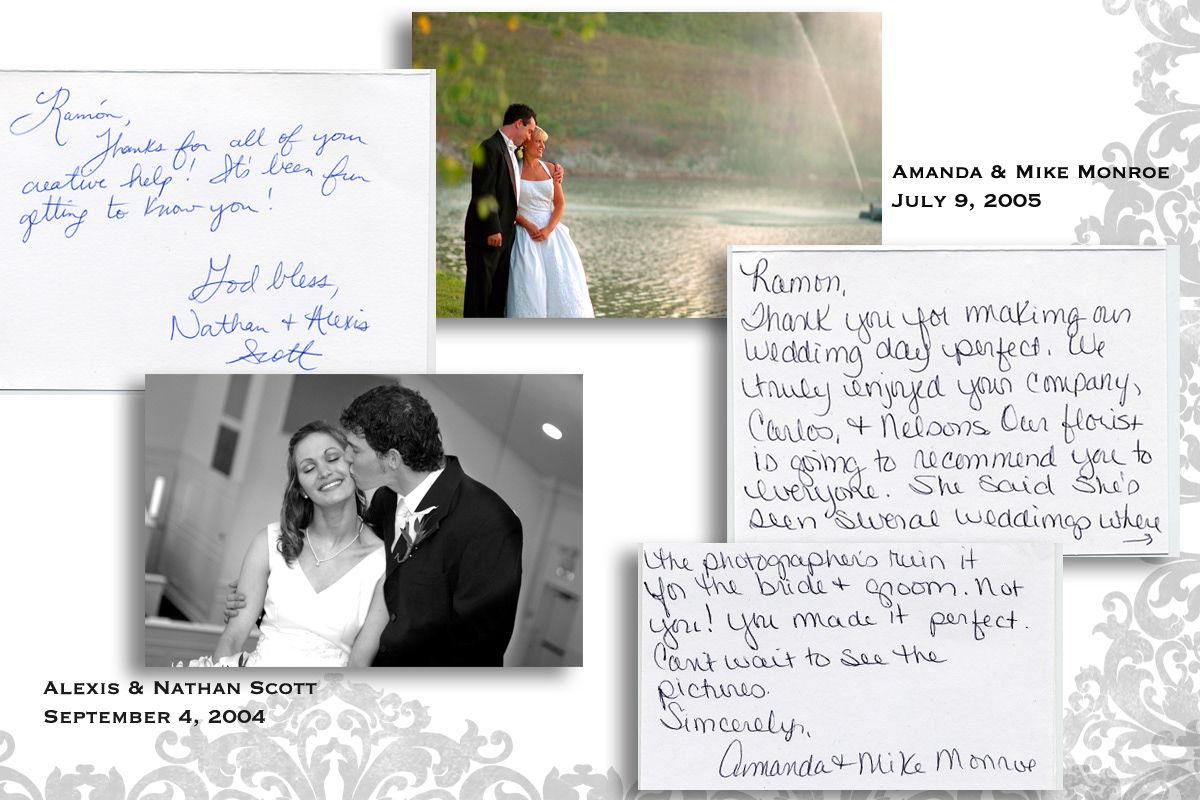 Ramón,
Thanks for all of your
creative help! It's been fun
getting to know you!
God bless,
Nathan + Alexis
Scott
Amanda & Mike Monroe
July 9, 2005
Ramon,
Thank you for making our
wedding day perfect. We
truly enjoyed your company,
Carlos, + Nelsons. Our florist
is going to recommend you to
everyone. She said she's
seen several weddings where
→
the photographer's ruin it
for the bride + groom. Not
you! You made it perfect.
Can't wait to see the
pictures.
Sincerely,
Amanda + Mike Monroe
Alexis & Nathan Scott
September 4, 2004